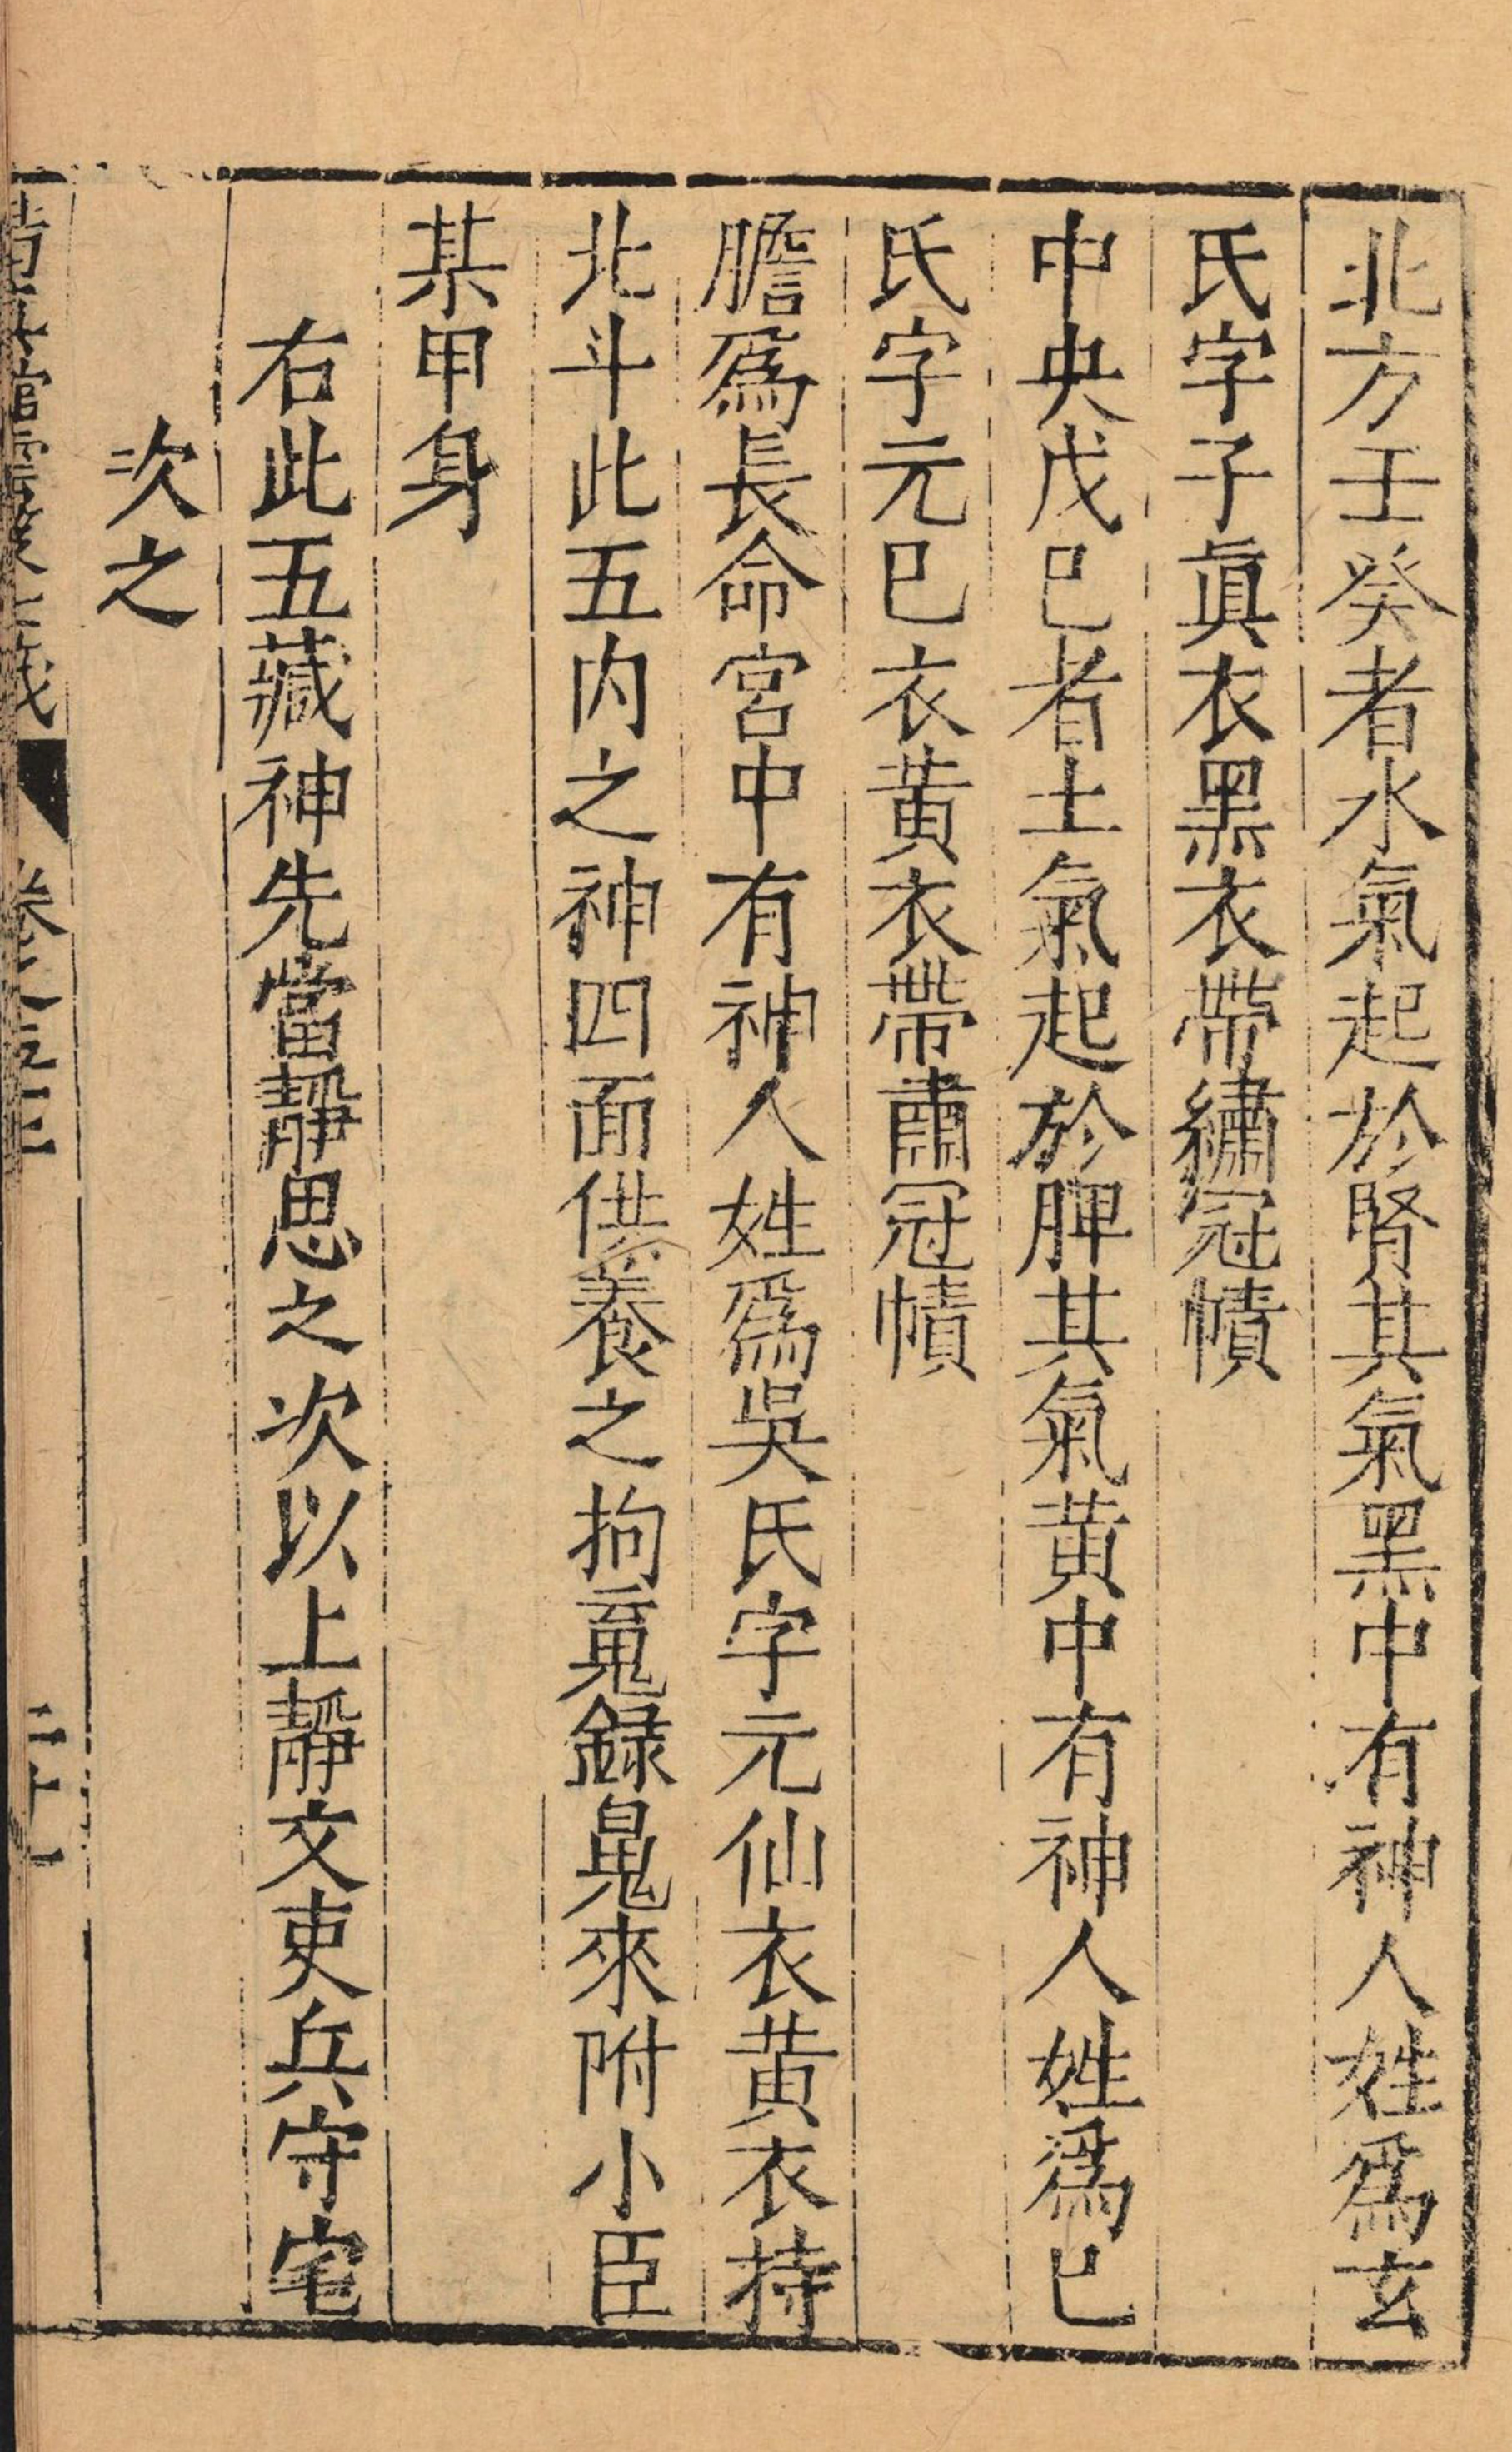 北方壬癸者水氣起於腎其氣黑中有神人姓爲玄
氏字子眞衣黑衣帶繡冠幘
中央戊巳者土氣起於脾其氣黃中有神人姓爲巳
氏字元巳衣黃衣帶肅冠幘
膽爲長命宮中有神人姓爲吳氏字元仙衣黃衣持
北斗此五内之神四面供養之拘䰟録鬼來附小臣
某甲身
右此五藏神先當靜思之次以上靜文吏兵守宅
次之
卷之五十三
二十一